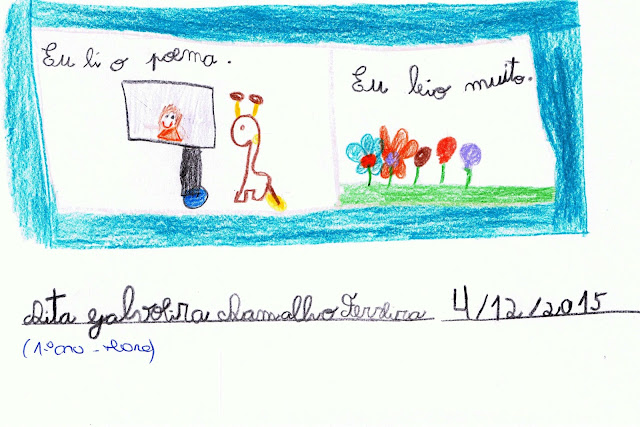 Eu li o poema.
Eu leio muito.
Rita Ramalho Ferreira 4/12/2015
(1.º ano -